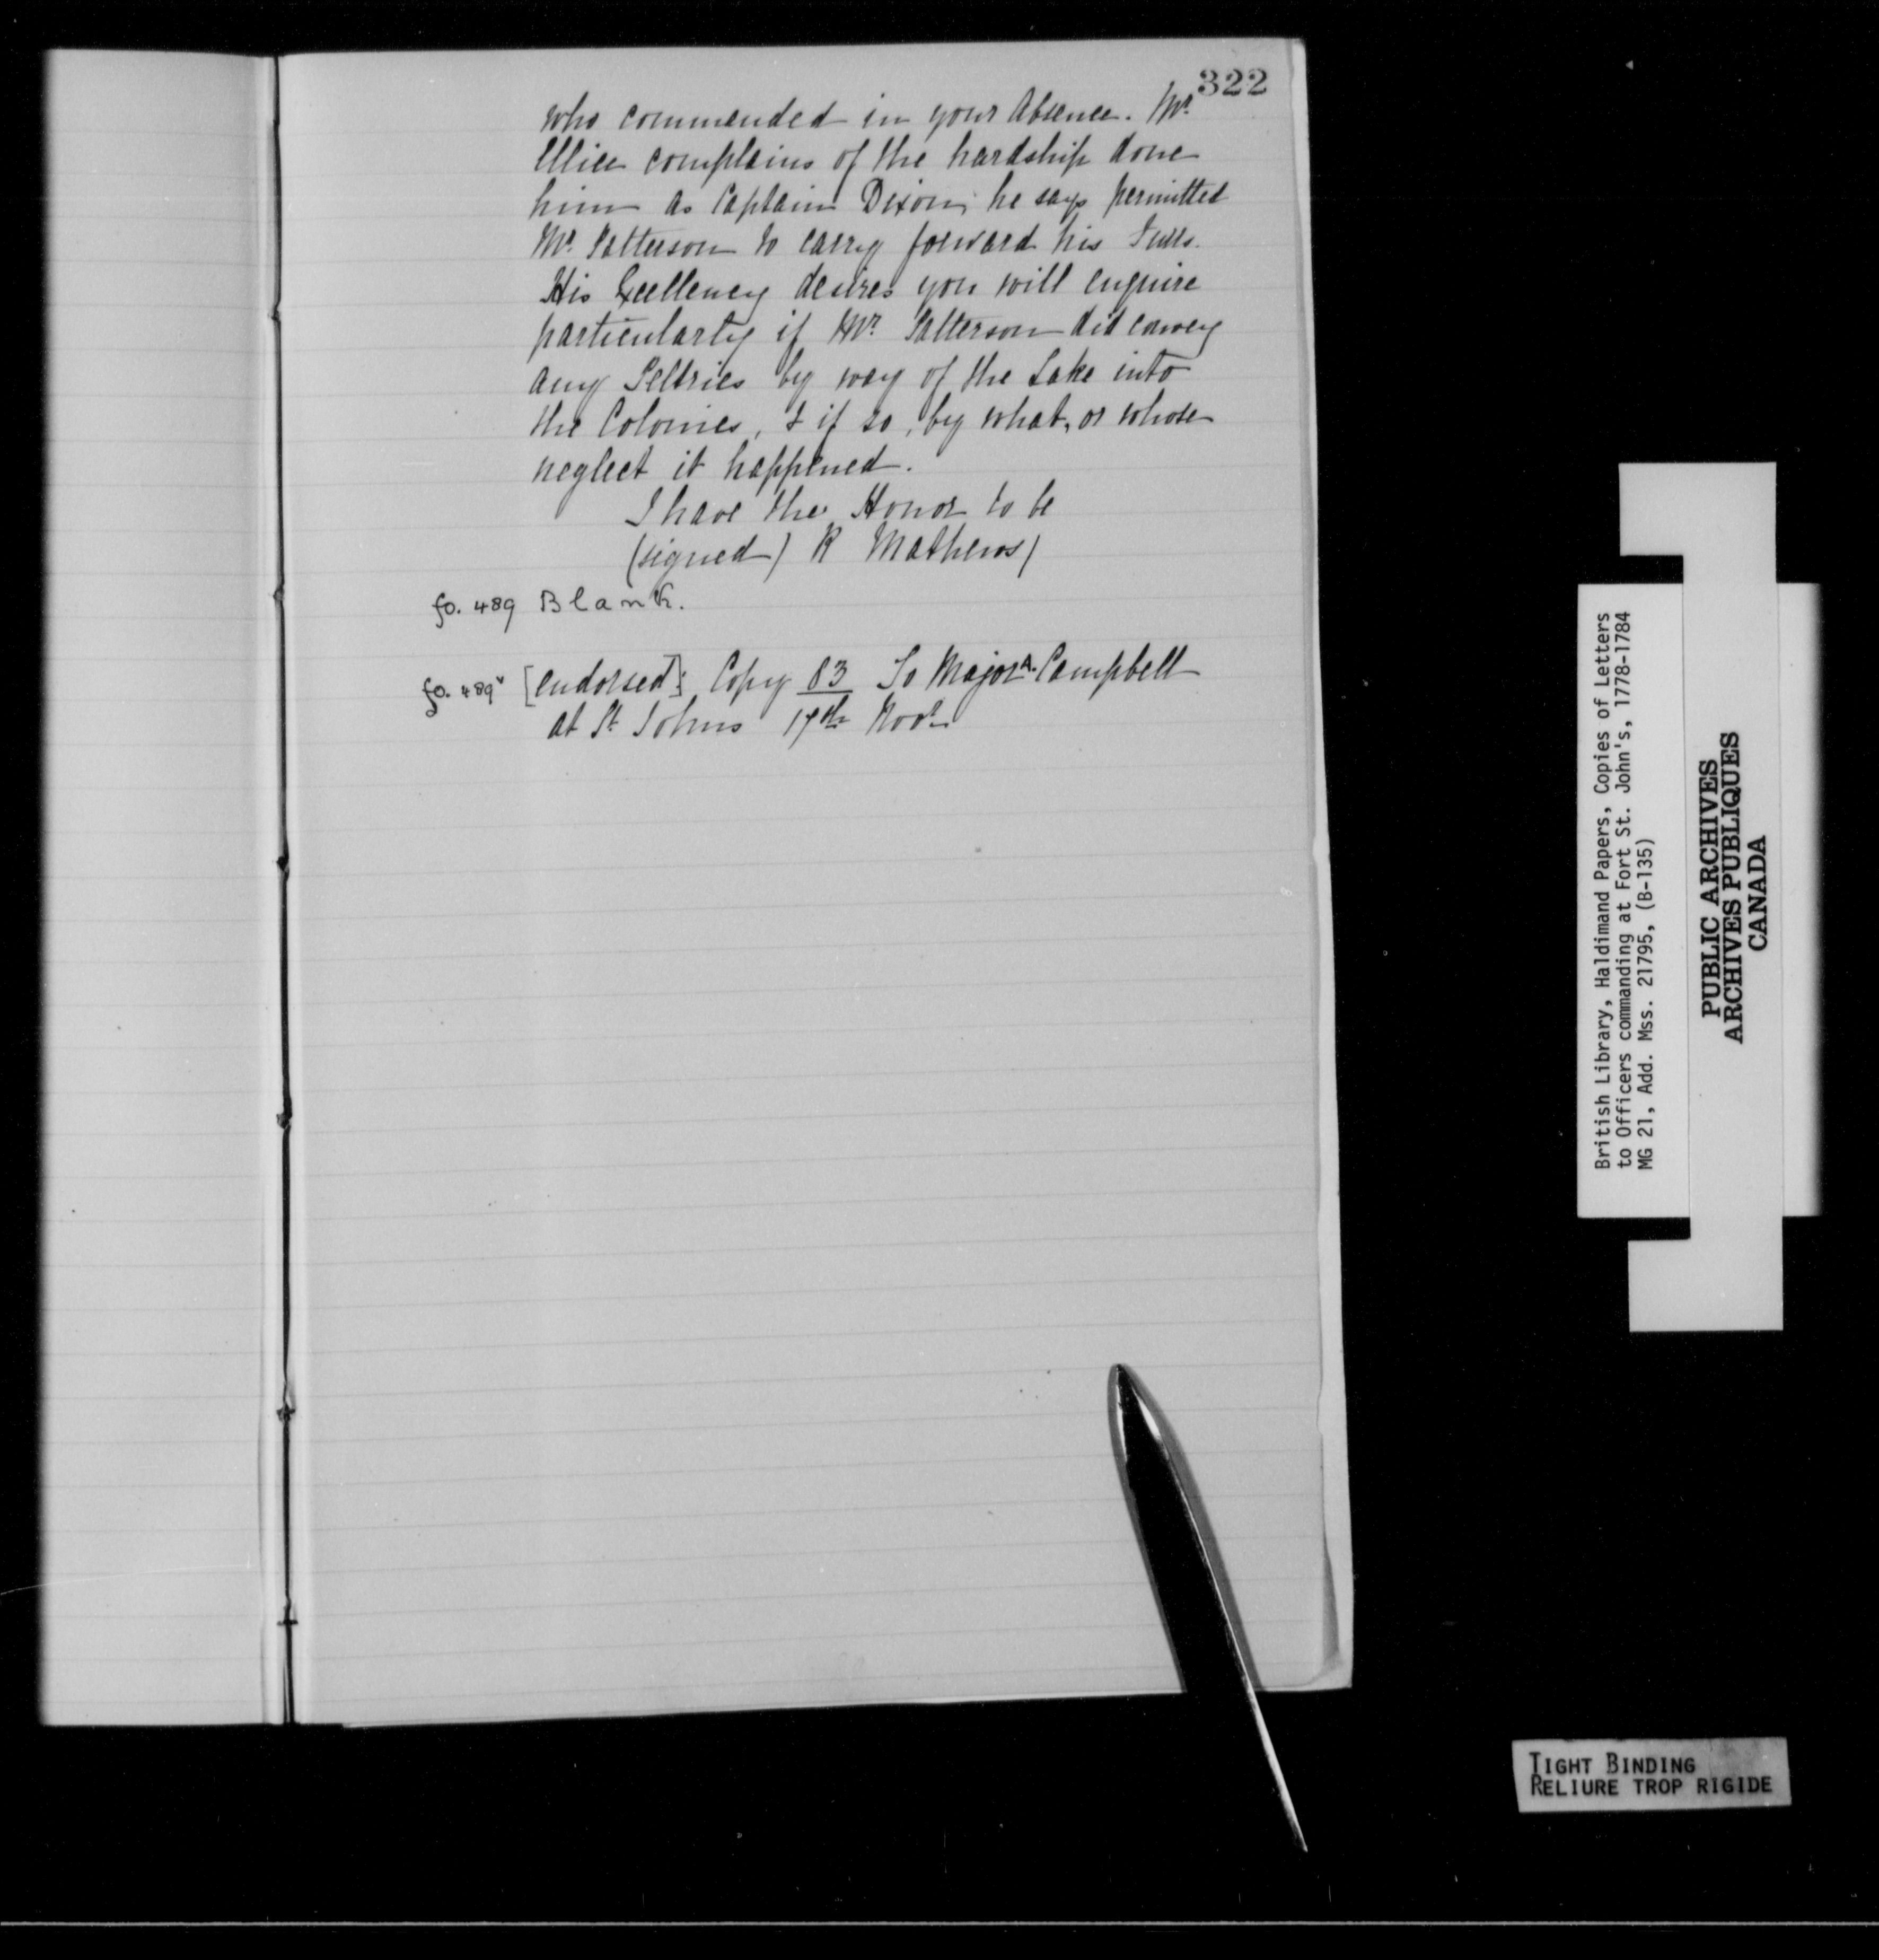 322
who commended in your Absence. Mr
Ellice complains of the hardship done
him as Captain Dixon, he says permitted
Mr. Patterson to carry forward his Furrs.
His Excellency desires you will enquire
particularly if Mr. Patterson did convey
any Peltries by way of the Lake into
the Colonies, & if so, by what, or whose
neglect it happened.
I have the Honor to be
(signed) R Mathews)
fo. 489 Blank.
fo. 489v [endorsed]: Copy 83 To Major A. Campbell
at St Johns 17th Novr
British Library, Haldimand Papers, Copies of Letters
to Officers commanding at Fort St. John's, 1778-1784
MG 21, Add. Mss. 21795, (B-135)
PUBLIC ARCHIVES
ARCHIVES PUBLIQUES
CANADA
TIGHT BINDING
RELIURE TROP RIGIDE